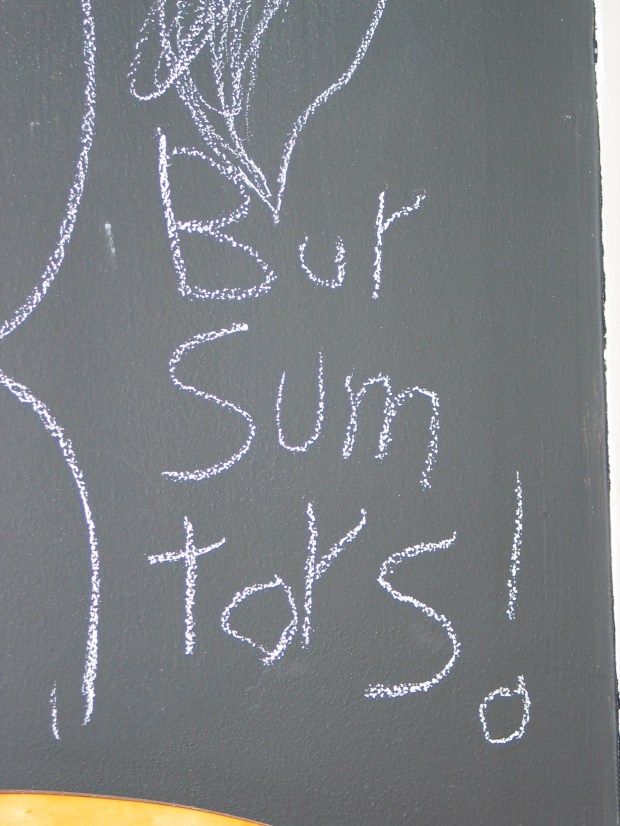 Bur
Sum
tors!